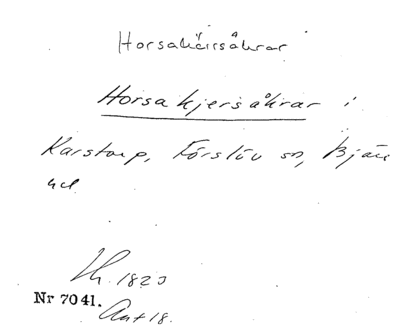 Horsakärrsåkrar
Horsakjersåkrar i
Karstorp, Förslöv sn, Bjäre
hd
Lh. 1820
Nr 7041.
Ant 18.